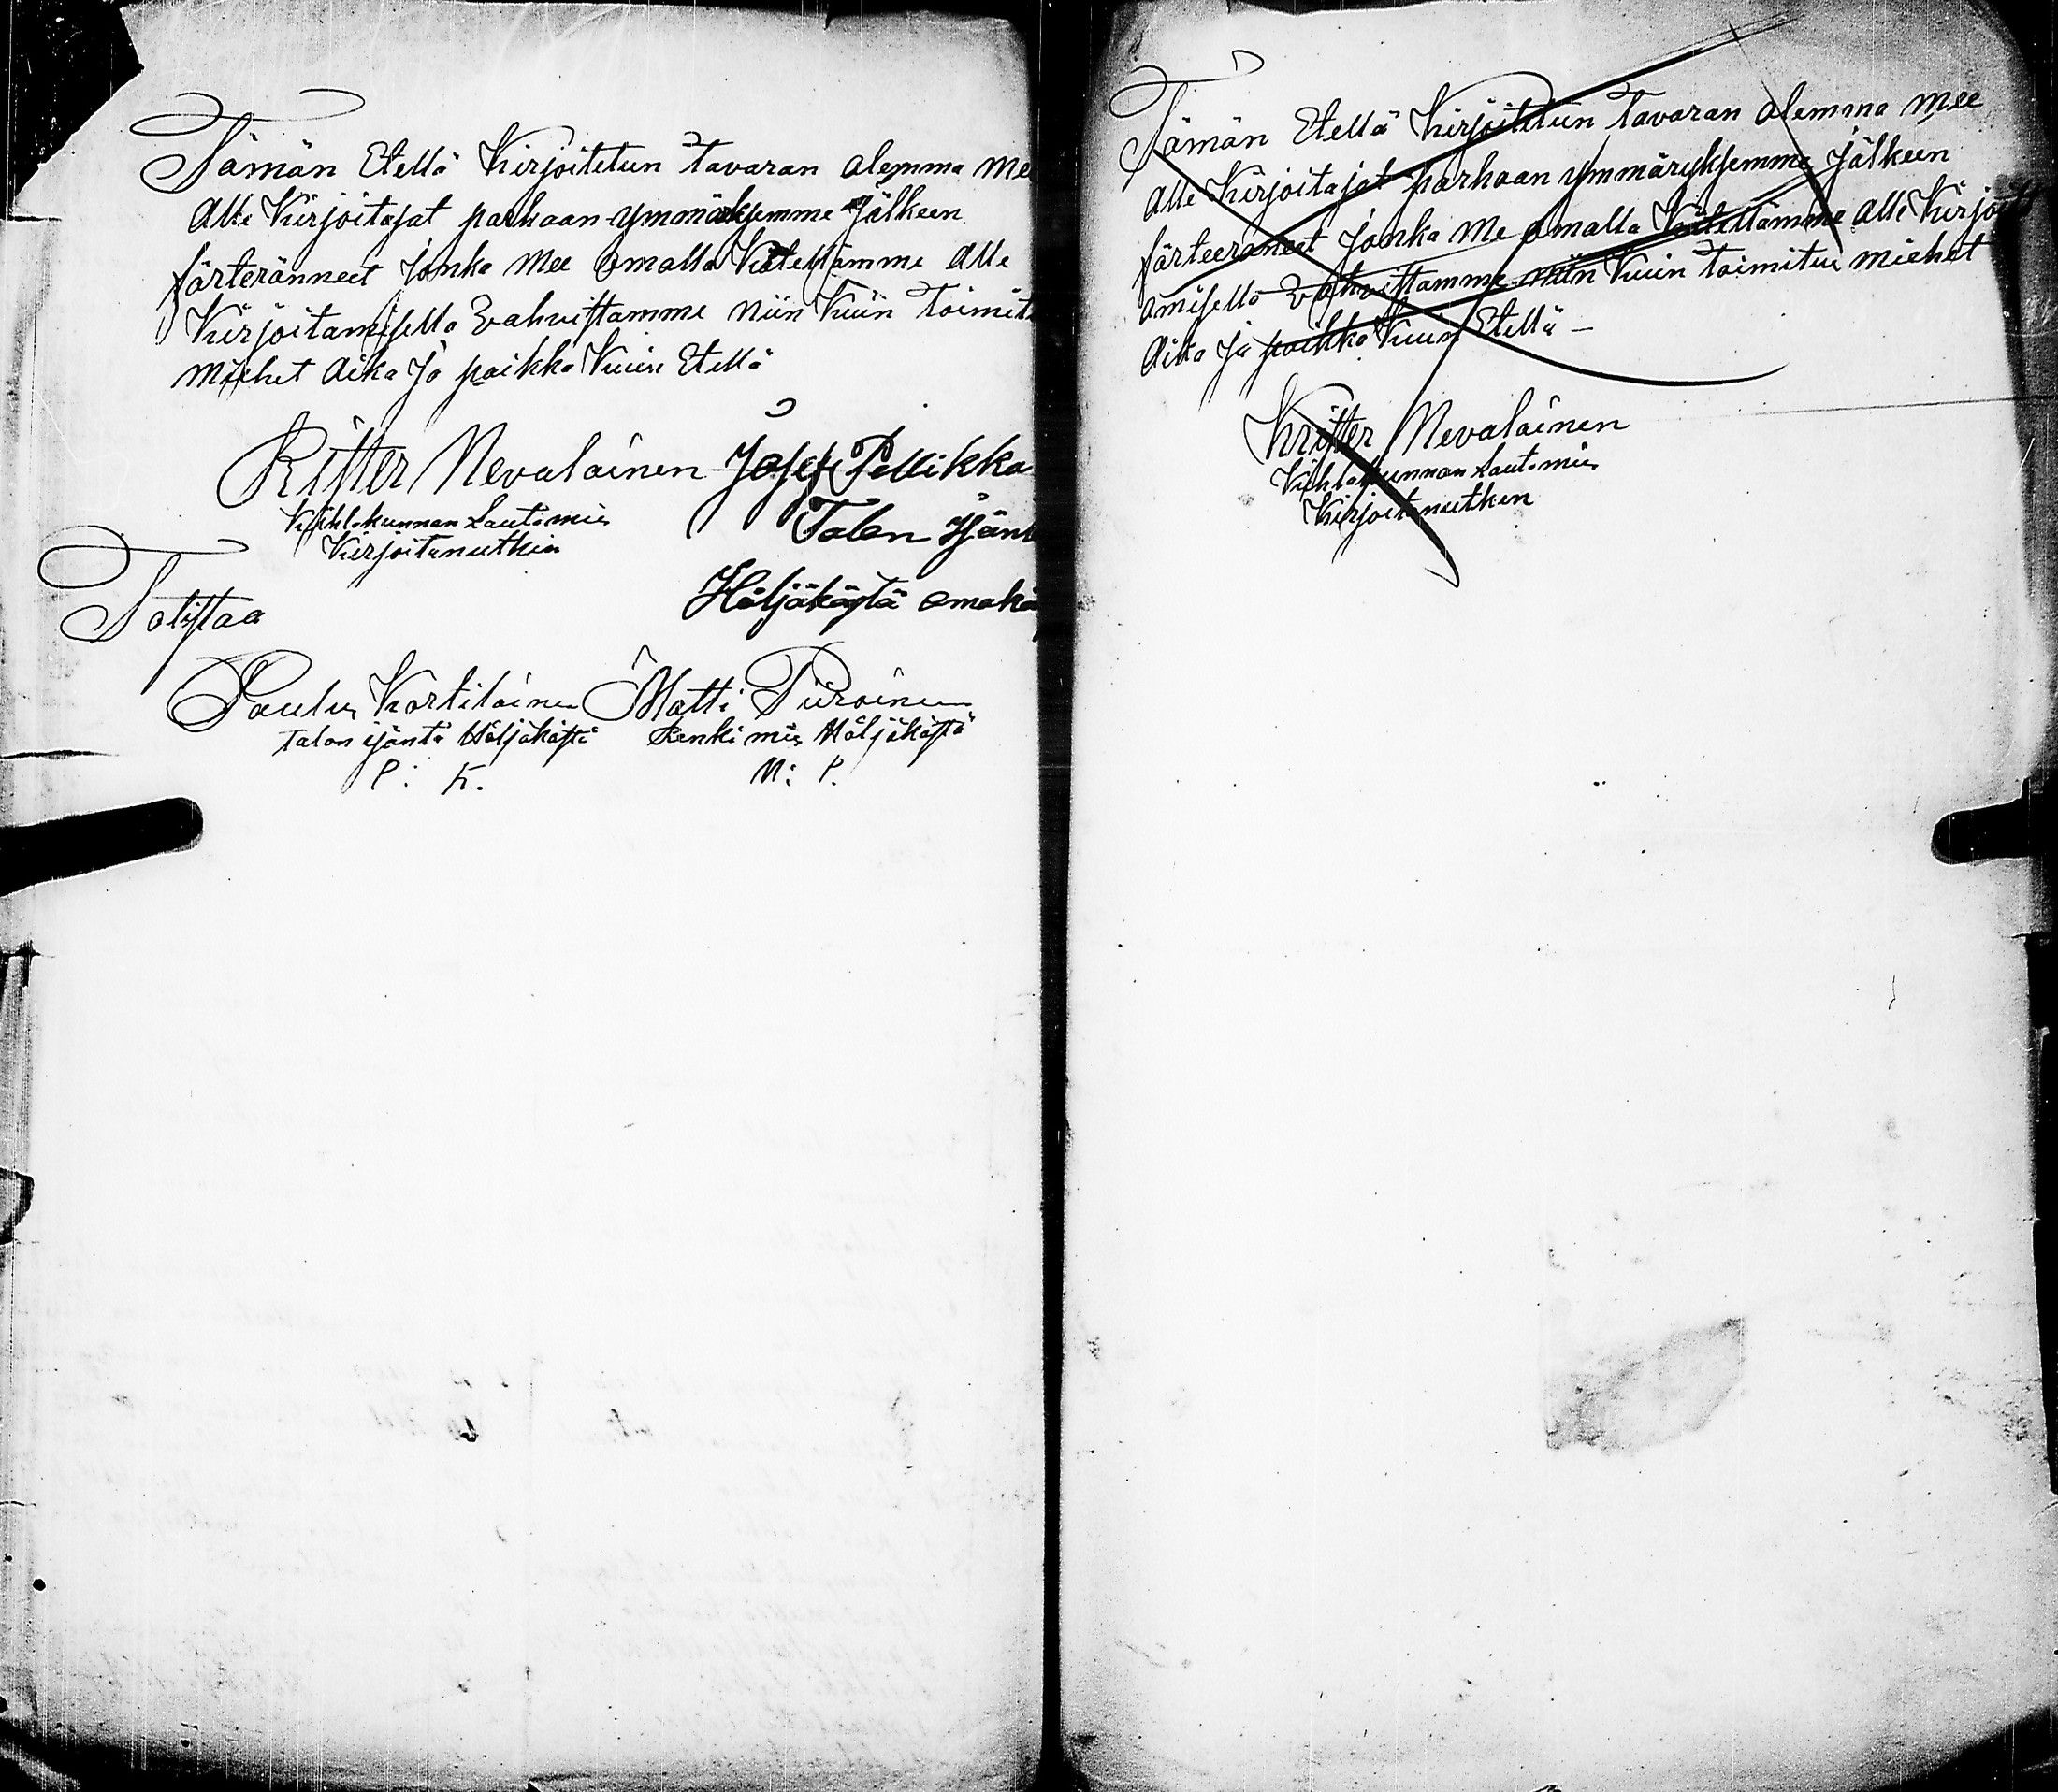 Tämän Etellä Kirjoitetun tavaran olemma me
Alle Kirjoitajat parhaan ymmäryksemme Jälkeen
färteränneet Jonka Mee Omalla Kätellämme Alle
Kirjoitamisella Vahvistamme niin Kuin toimit
Miehet Aika Ja paikka Kuin Etellä
Ritter Nevalainen Josef Pellikka
Kihlakunnan Lautamies Talon Isän
Kirjoitanutkin
Häljäkästä omakä
Totistaa
Paulus Kortilainen Matti Piiroinen
talon isäntä Häljäkästä Renki mies Häljäkästä
P: K. M: P.
Tämän Etellä Kirjoitetun Tavaran olemma mee
Alle Kirjoitajat parhaan ymmäryksemme Jälkeen
färteeraneet Jonka Me omalla Kätellämme Alle Kirjoit
amisella Vahvistamme niin Kuin toimitus miehet
Aika Ja paikka Kuin Etellä —
Krister Nevalainen
Kihlakunnan Lautamies
Kirjoitanutken